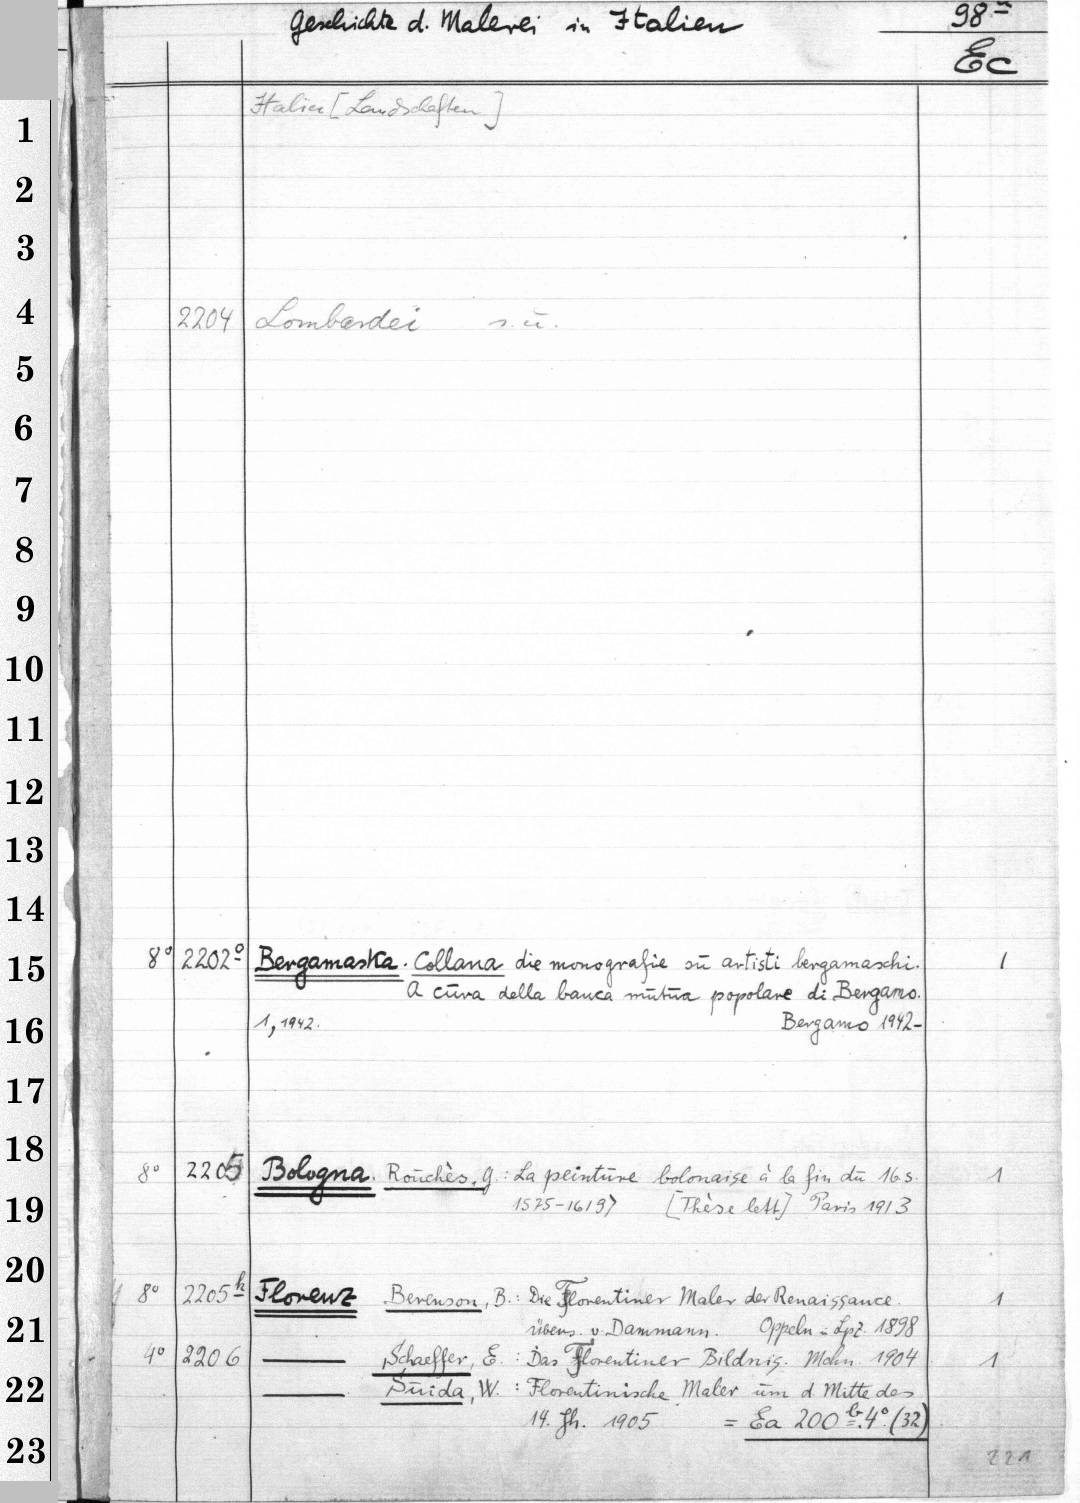 Geschichte d. Malerei in Italien
98ª
Ec
Italien [Landschaften]
1
2
3
4 2204 Lombardei s. u.
5
6
7
8
9
10
11
12
13
14
15 8° 2202ª Bergamaska. Collana die monografie su artisti bergamaschi. 1
A cura della banca mutua popolare di Bergamo.
16 1, 1942. Bergamo 1942-
17
18 8° 2205 Bologna. Rouchès, G.: La peinture bolonaise à la fin du 16. s. 1
19 1575-1619) [Thèse lett] Paris 1913
20
8° 2205h Florenz Berenson, B.: Die Florentiner Maler der Renaissance. 1
21 übers. v. Dammann. Oppeln u. Lpz. 1898
4° 2206 — Schaeffer, E.: Das Florentiner Bildnis. Mchn. 1904 1
22 — Suida, W.: Florentinische Maler um d. Mitte des
14. Jh. 1905 = Ea 200 b. 4° (32)
23
221